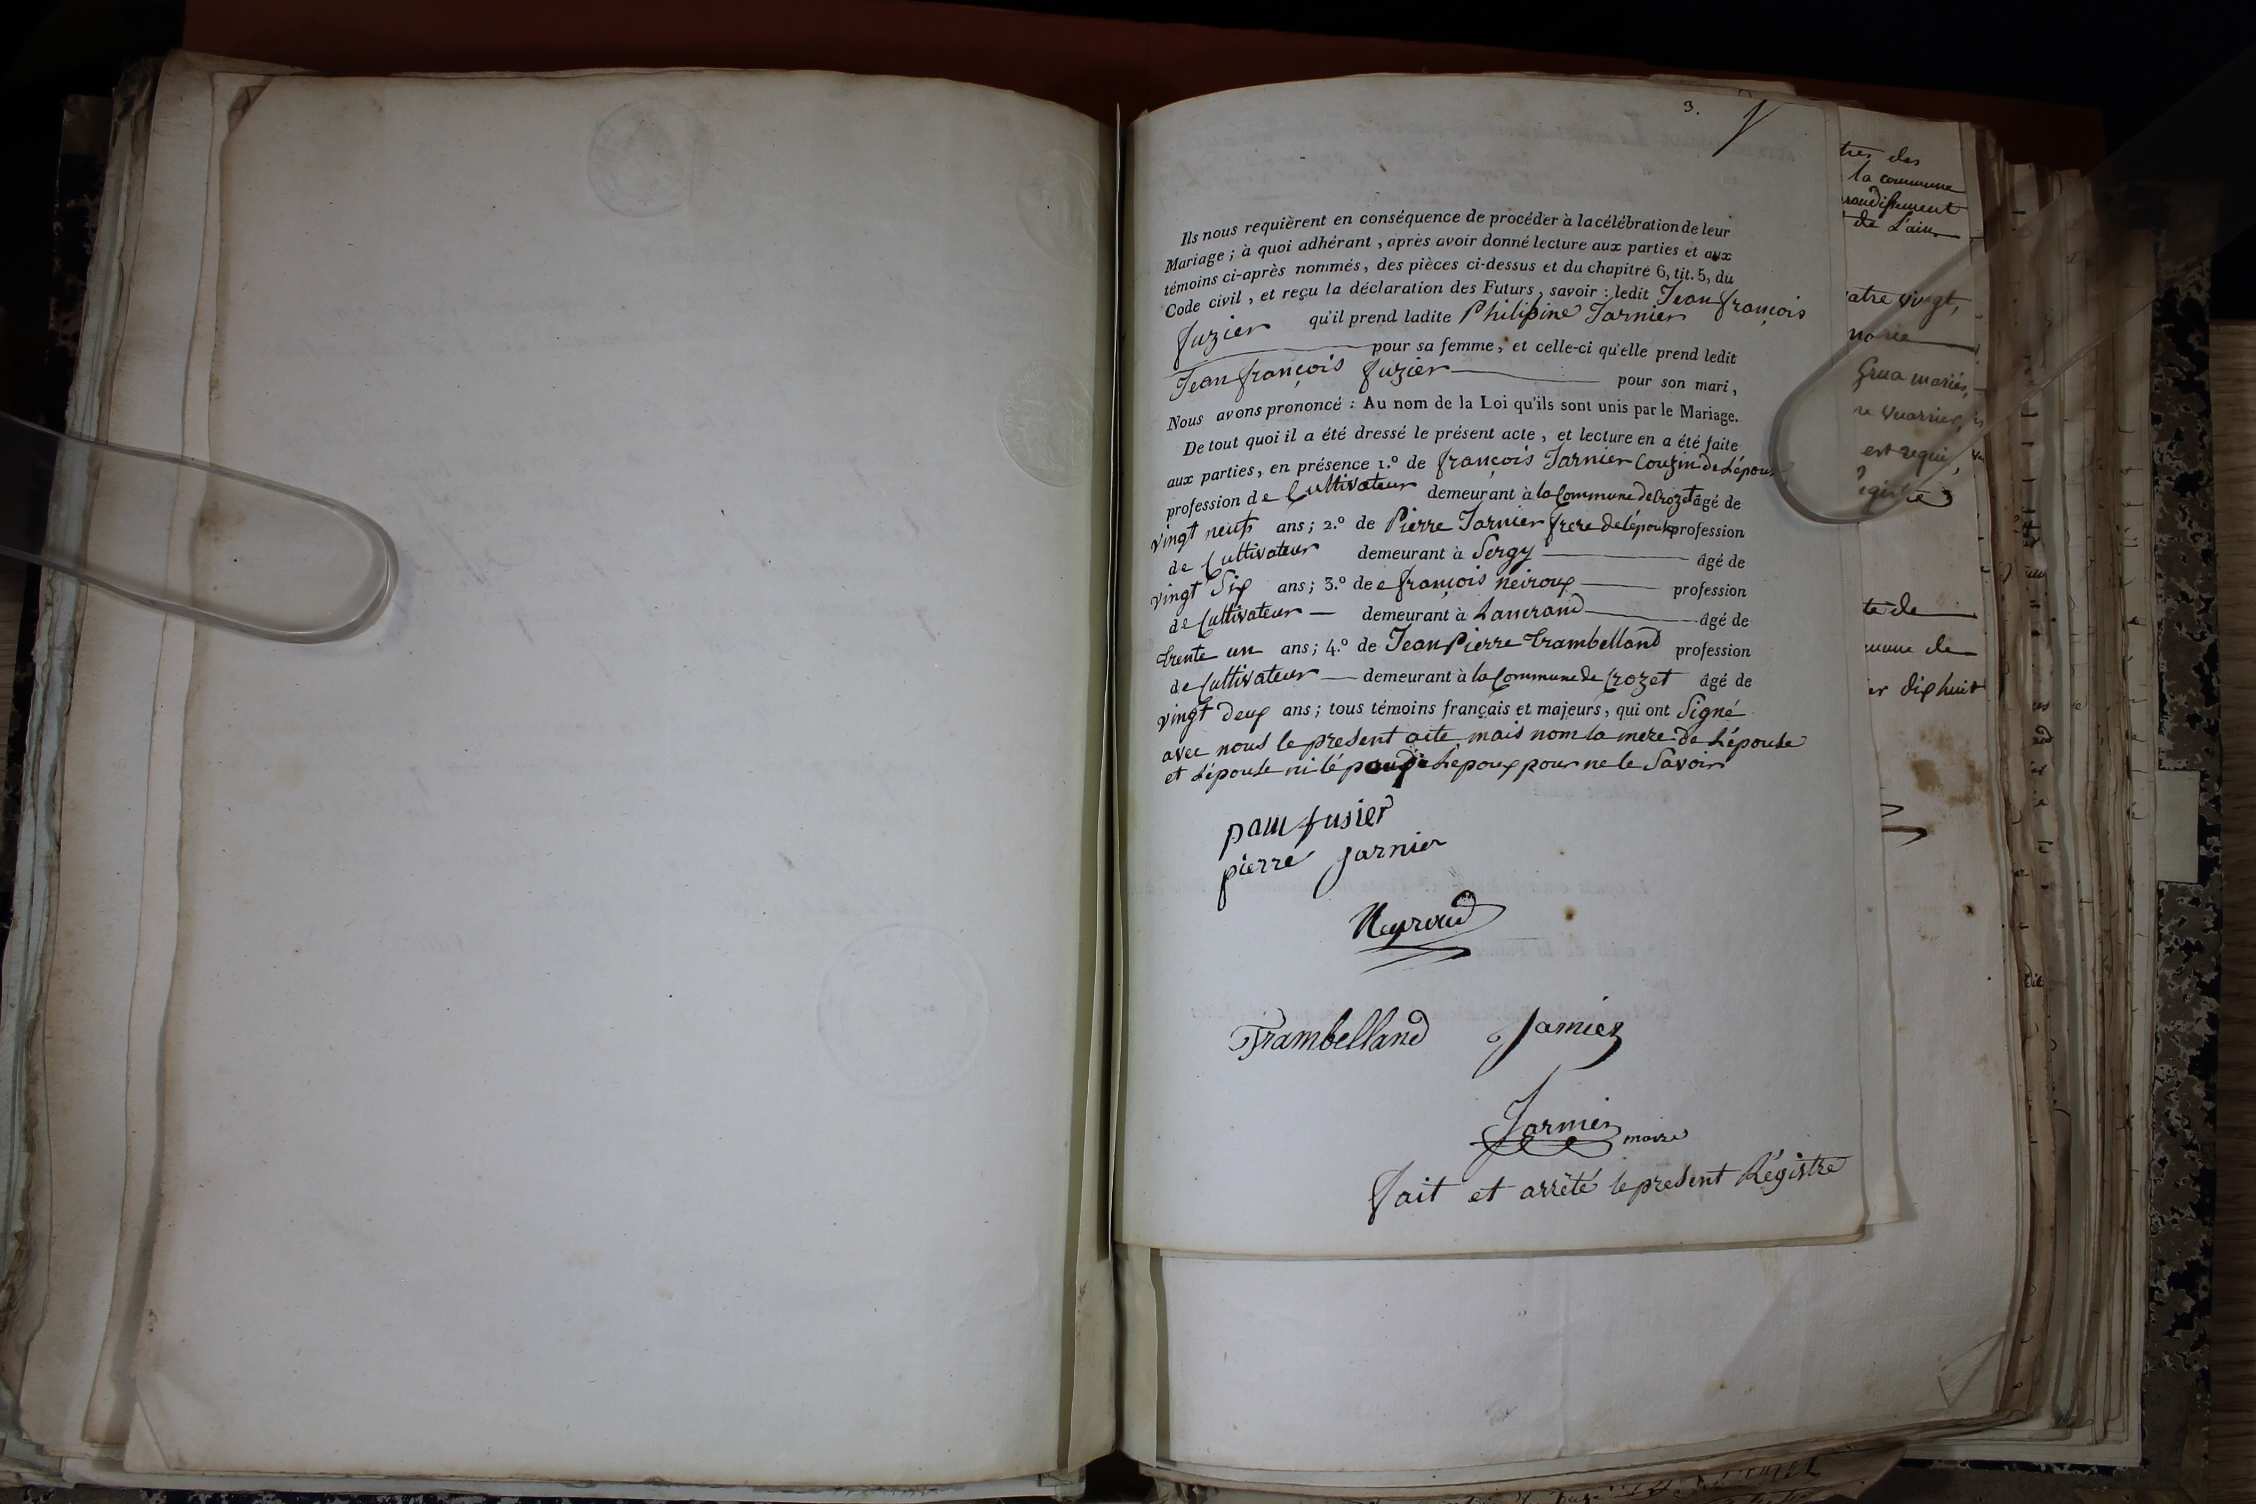 3.
Ils nous requièrent en conséquence de procéder à la célébration de leur
Mariage ; à quoi adhérant , après avoir donné lecture aux parties et aux
témoins ci-après nommés, des pièces ci-dessus et du chapitre 6, tit. 5, du
Code civil , et reçu la déclaration des Futurs, savoir : ledit Jean françois
fuzier qu'il prend ladite Philipine Jarnier
pour sa femme, et celle-ci qu'elle prend ledit
Jean françois fuzier pour son mari,
Nous avons prononcé : Au nom de la Loi qu'ils sont unis par le Mariage.
De tout quoi il a été dressé le présent acte , et lecture en a été faite
aux parties, en présence 1.º de françois Jarnier Couzin de Lépouse
profession de Cultivateur demeurant à la Commune de Crozet âgé de
vingt neuf ans ; 2.º de Pierre Jarnier frere de lépouse profession
de Cultivateur demeurant à Sergy âgé de
vingt Six ans ; 3.º de françois neiroux profession
de Cultivateur demeurant à Lancrand âgé de
trente un ans ; 4.º de Jean Pierre Trambelland profession
de Cultivateur demeurant à la Commune de Crozet âgé de
vingt deux ans ; tous témoins français et majeurs, qui ont Signé
avec nous le present acte mais nom la mere de Lépouse
et Lépouse ni Lépoux pour ne le Savoir
pierre jarnier
Neyroud
Trambelland Jarnier
Jarnier maire
fait et arrêté le present Régistre
tres des
la commune
de L'ain
atre vingt,
marie
Grua mariés,
est requi,
te de
mune de
er dix huit